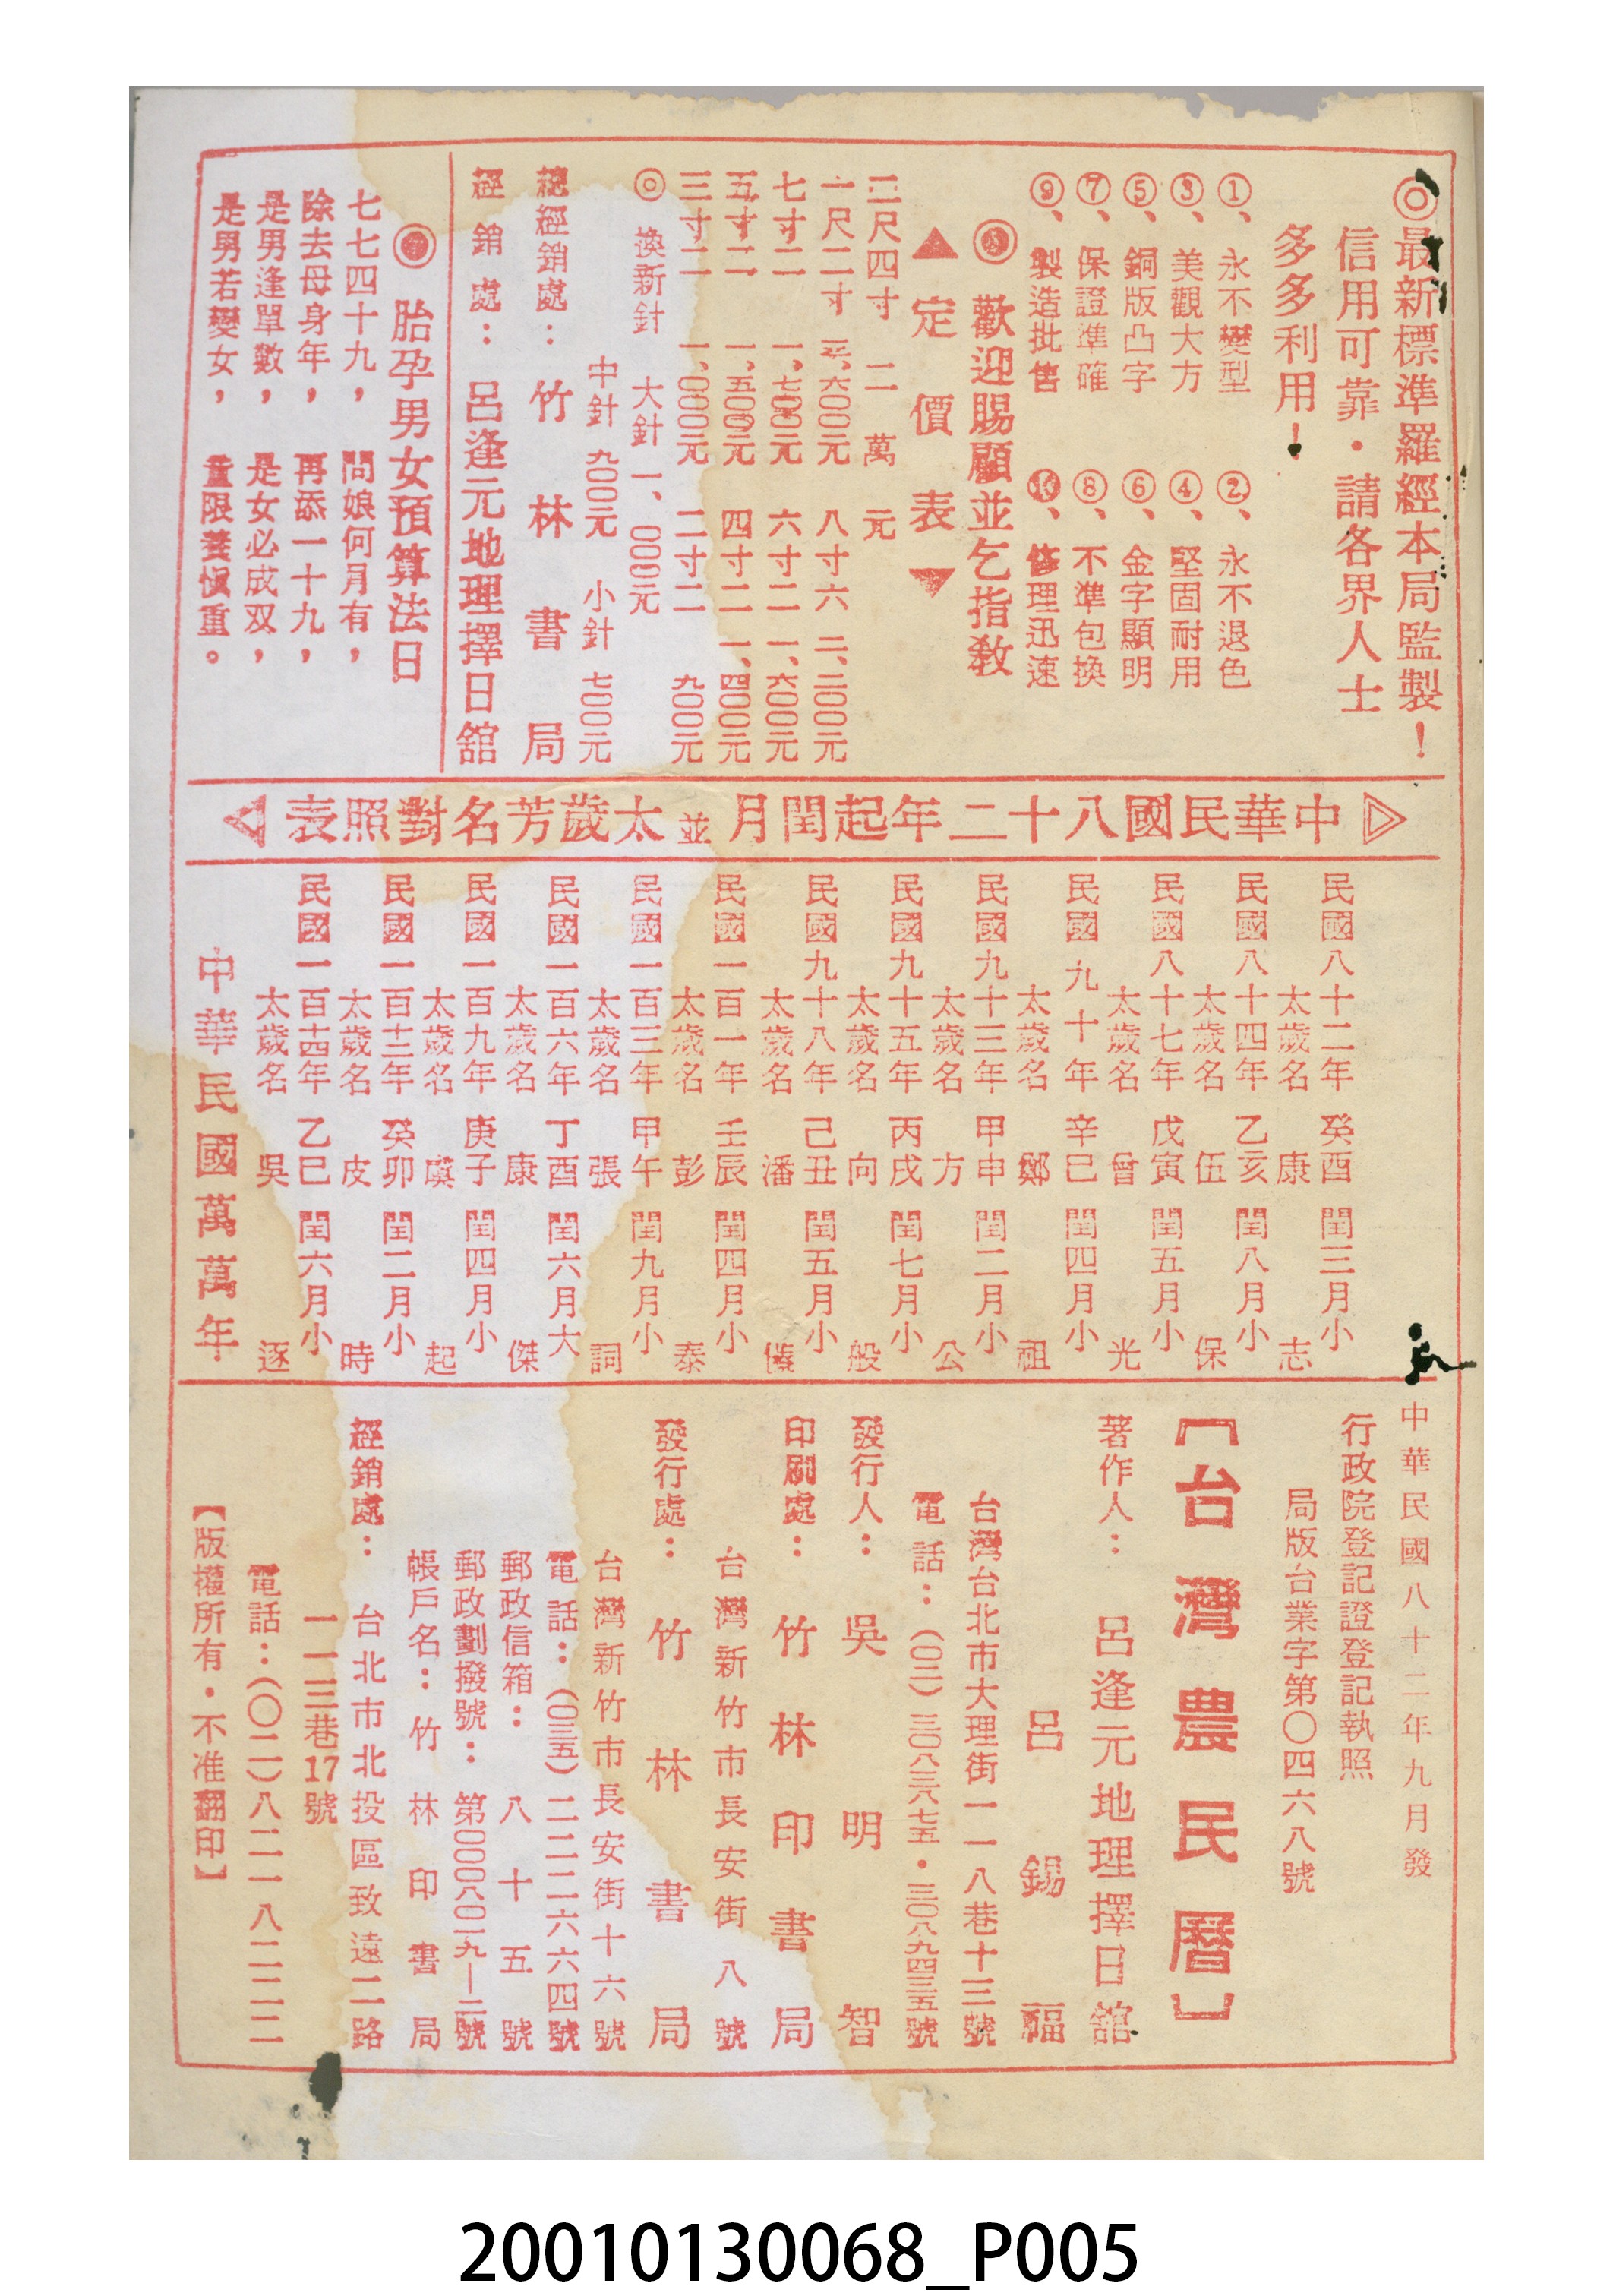 ◎最新標準羅經本局監製！
信用可靠．請各界人士
多多利用！
①、永不變型　②、永不退色
③、美觀大方　④、堅固耐用
⑤、銅版凸字　⑥、金字顯明
⑦、保證準確　⑧、不準包換
⑨、製造批售　⑩、修理迅速
歡迎賜顧並乞指敎
▲定價表▼
二尺四寸　二萬元
一尺二寸　六〇〇元　八寸六　二、二〇〇元
七寸二　一、七〇〇元　六寸二　一、六〇〇元
五寸二　一、五〇〇元　四寸二　一、四〇〇元
三寸二　一、〇〇〇元　二寸二　九〇〇元
◎換新針　大針一、〇〇〇元
中針九〇〇元　小針七〇〇元
總經銷處：竹林書局
經銷處：呂逢元地理擇日舘
胎孕男女預算法日
七七四十九，問娘何月有，
除去母身年，再添一十九，
是男逢單數，是女必成双，
是男若變女，壽限養愼重。
▷中華民國八十二年起閏月並太歲芳名對照表◁
民國八十二年　癸酉　閏三月小
太歲名　康志
民國八十四年　乙亥　閏八月小
太歲名　伍保
民國八十七年　戊寅　閏五月小
太歲名　曾光
民國九十年　辛巳　閏四月小
太歲名　鄭祖
民國九十三年　甲申　閏二月小
太歲名　方公
民國九十五年　丙戌　閏七月小
太歲名　向般
民國九十八年　己丑　閏五月小
太歲名　潘
民國一百一年　壬辰　閏四月小
太歲名　彭泰
民國一百三年　甲午　閏九月小
太歲名　張詞
民國一百六年　丁酉　閏六月大
太歲名　康傑
民國一百九年　庚子　閏四月小
太歲名　虞起
民國一百十二年　癸卯　閏二月小
太歲名　皮時
民國一百十四年　乙巳　閏六月小
太歲名　吳逐
中華民國萬萬年
中華民國八十二年九月發
行政院登記證登記執照
局版台業字第〇四六八號
【台灣農民曆】
著作人：呂逢元地理擇日舘
呂錫福
台灣台北市大理街一一八巷十三號
電話：（〇二）三〇八三八七五．三〇八九四三五號
發行人：吳明智
印刷處：竹林印書局
台灣新竹市長安街八號
發行處：竹林書局
台灣新竹市長安街十六號
電話：（〇三五）二二二六六四號
郵政信箱：八十五號
郵政劃撥號：第〇〇〇八〇一九—二號
帳戶名：竹林印書局
經銷處：台北市北投區致遠二路
一一三巷17號
電話：（〇二）八二一八二二二
【版權所有．不准翻印】
20010130068_P005